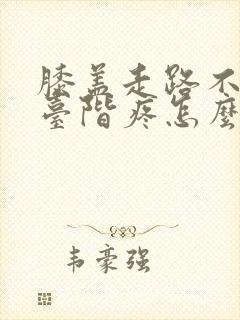 膝盖走路不
臺階疼怎麼
韦豪强